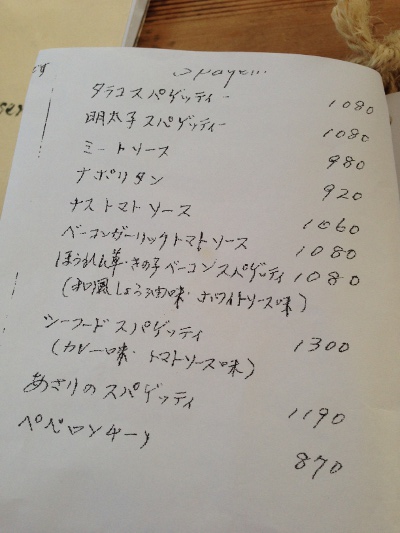 タラコスパゲッティー 1080
明太子スパゲッティー 1080
ミートソース 980
ナポリタン 920
ナストマトソース 1060
ベーコンガーリックトマトソース 1080
ほうれん草・きの子ベーコンスパゲッティ 1080
(和風しょうゆ味・ホワイトソース味)
シーフードスパゲッティ 1300
(カレー味・トマトソース味)
あさりのスパゲッティ 1190
ペペロンチーノ 870